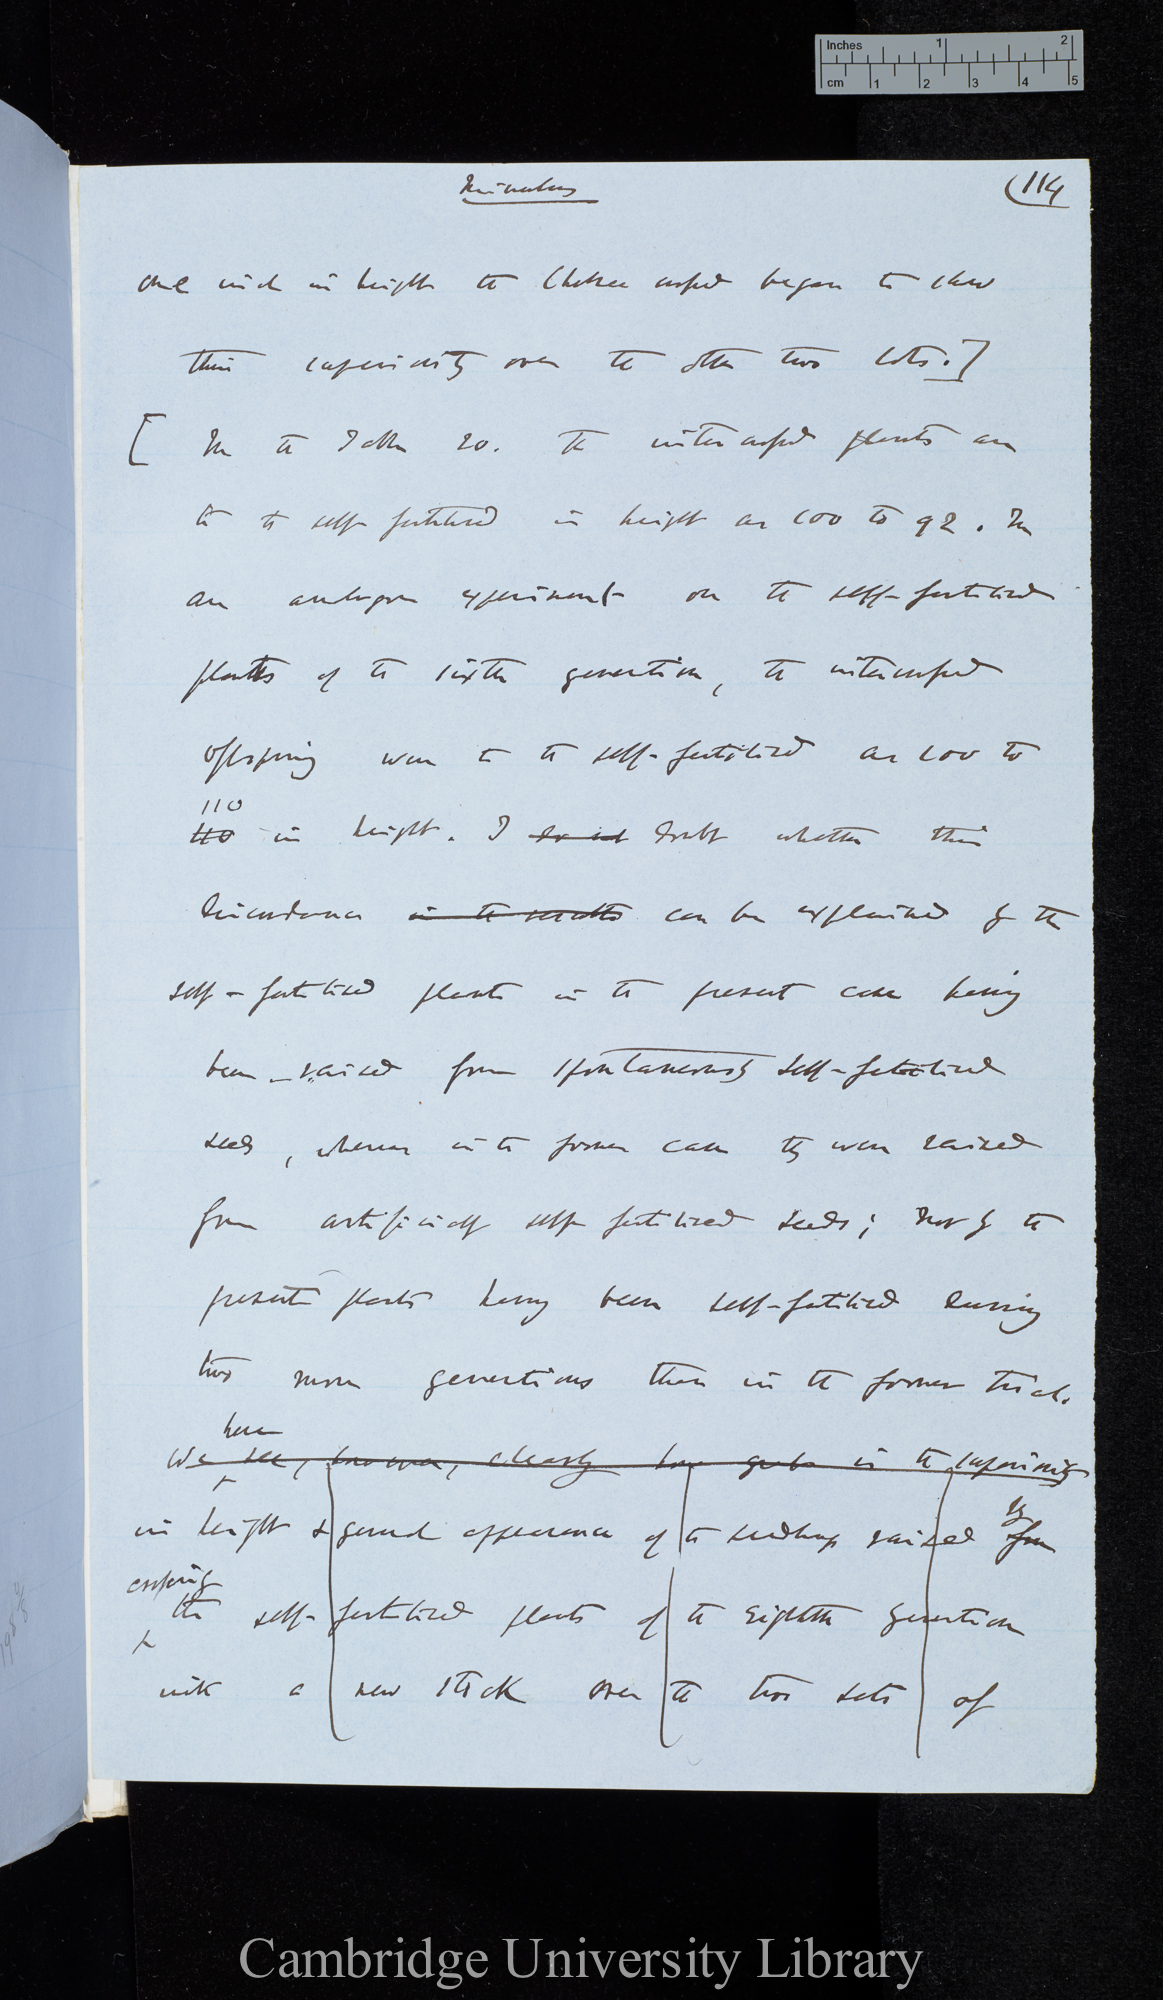 Inches 1 2
cm 1 2 3 4 5
Mimulus
(114
one inch in height the Chelsea crossed began to show
their superiority over the other two lots.]
[ In the Table 20. the intercrossed plants are
to the self-fertilised in height as 100 to 92. In
an analogous experiment on the self-fertilised
plants of the sixth generation, the intercrossed
offspring were to the self-fertilised as 100 to
110
110 in height. I do not doubt whether this
discordance in the results can be explained by the
self-fertilised plants in the present case having
been raised from spontaneously self-fertilised
seeds, whereas in the former case they were raised
from artificially self-fertilised seeds; nor by the
present plants having been self-fertilised during
two more generations than in the former trial.
here
We see, however, clearly in the superiority
in height & general appearance of the seedlings raised from
by
crossing
the self-fertilised plants of the eighth generation
with a new stock over the two sets of
Cambridge University Library